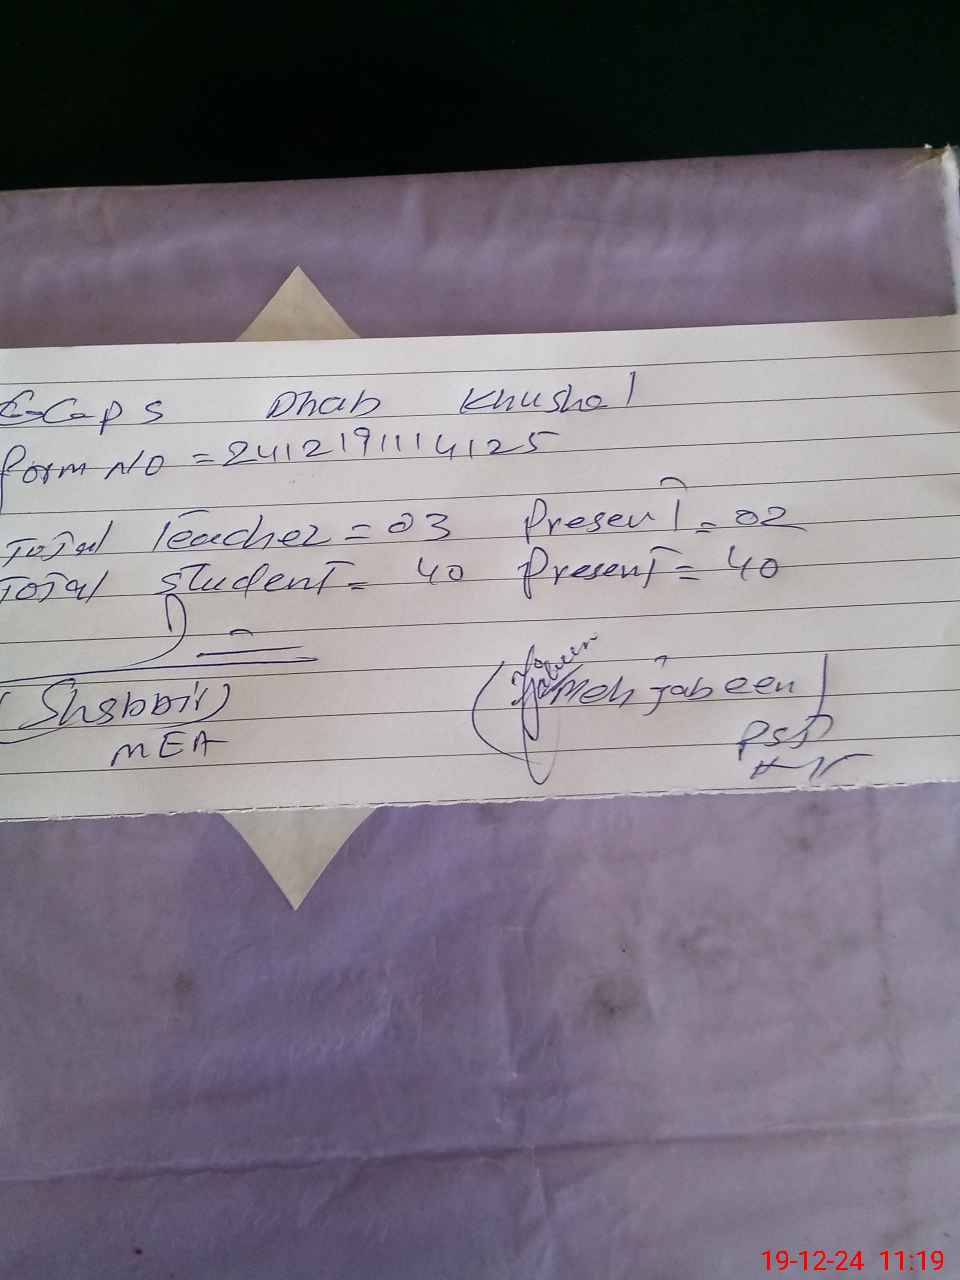 GGPS Dhab Khushal
Form NO = 24121911114125
Total Teacher = 03 Present = 02
Total student = 40 Present = 40
(Shabbir)
MEA
Jabeen
(Mehjabeen)
PST
19-12-24 11:19